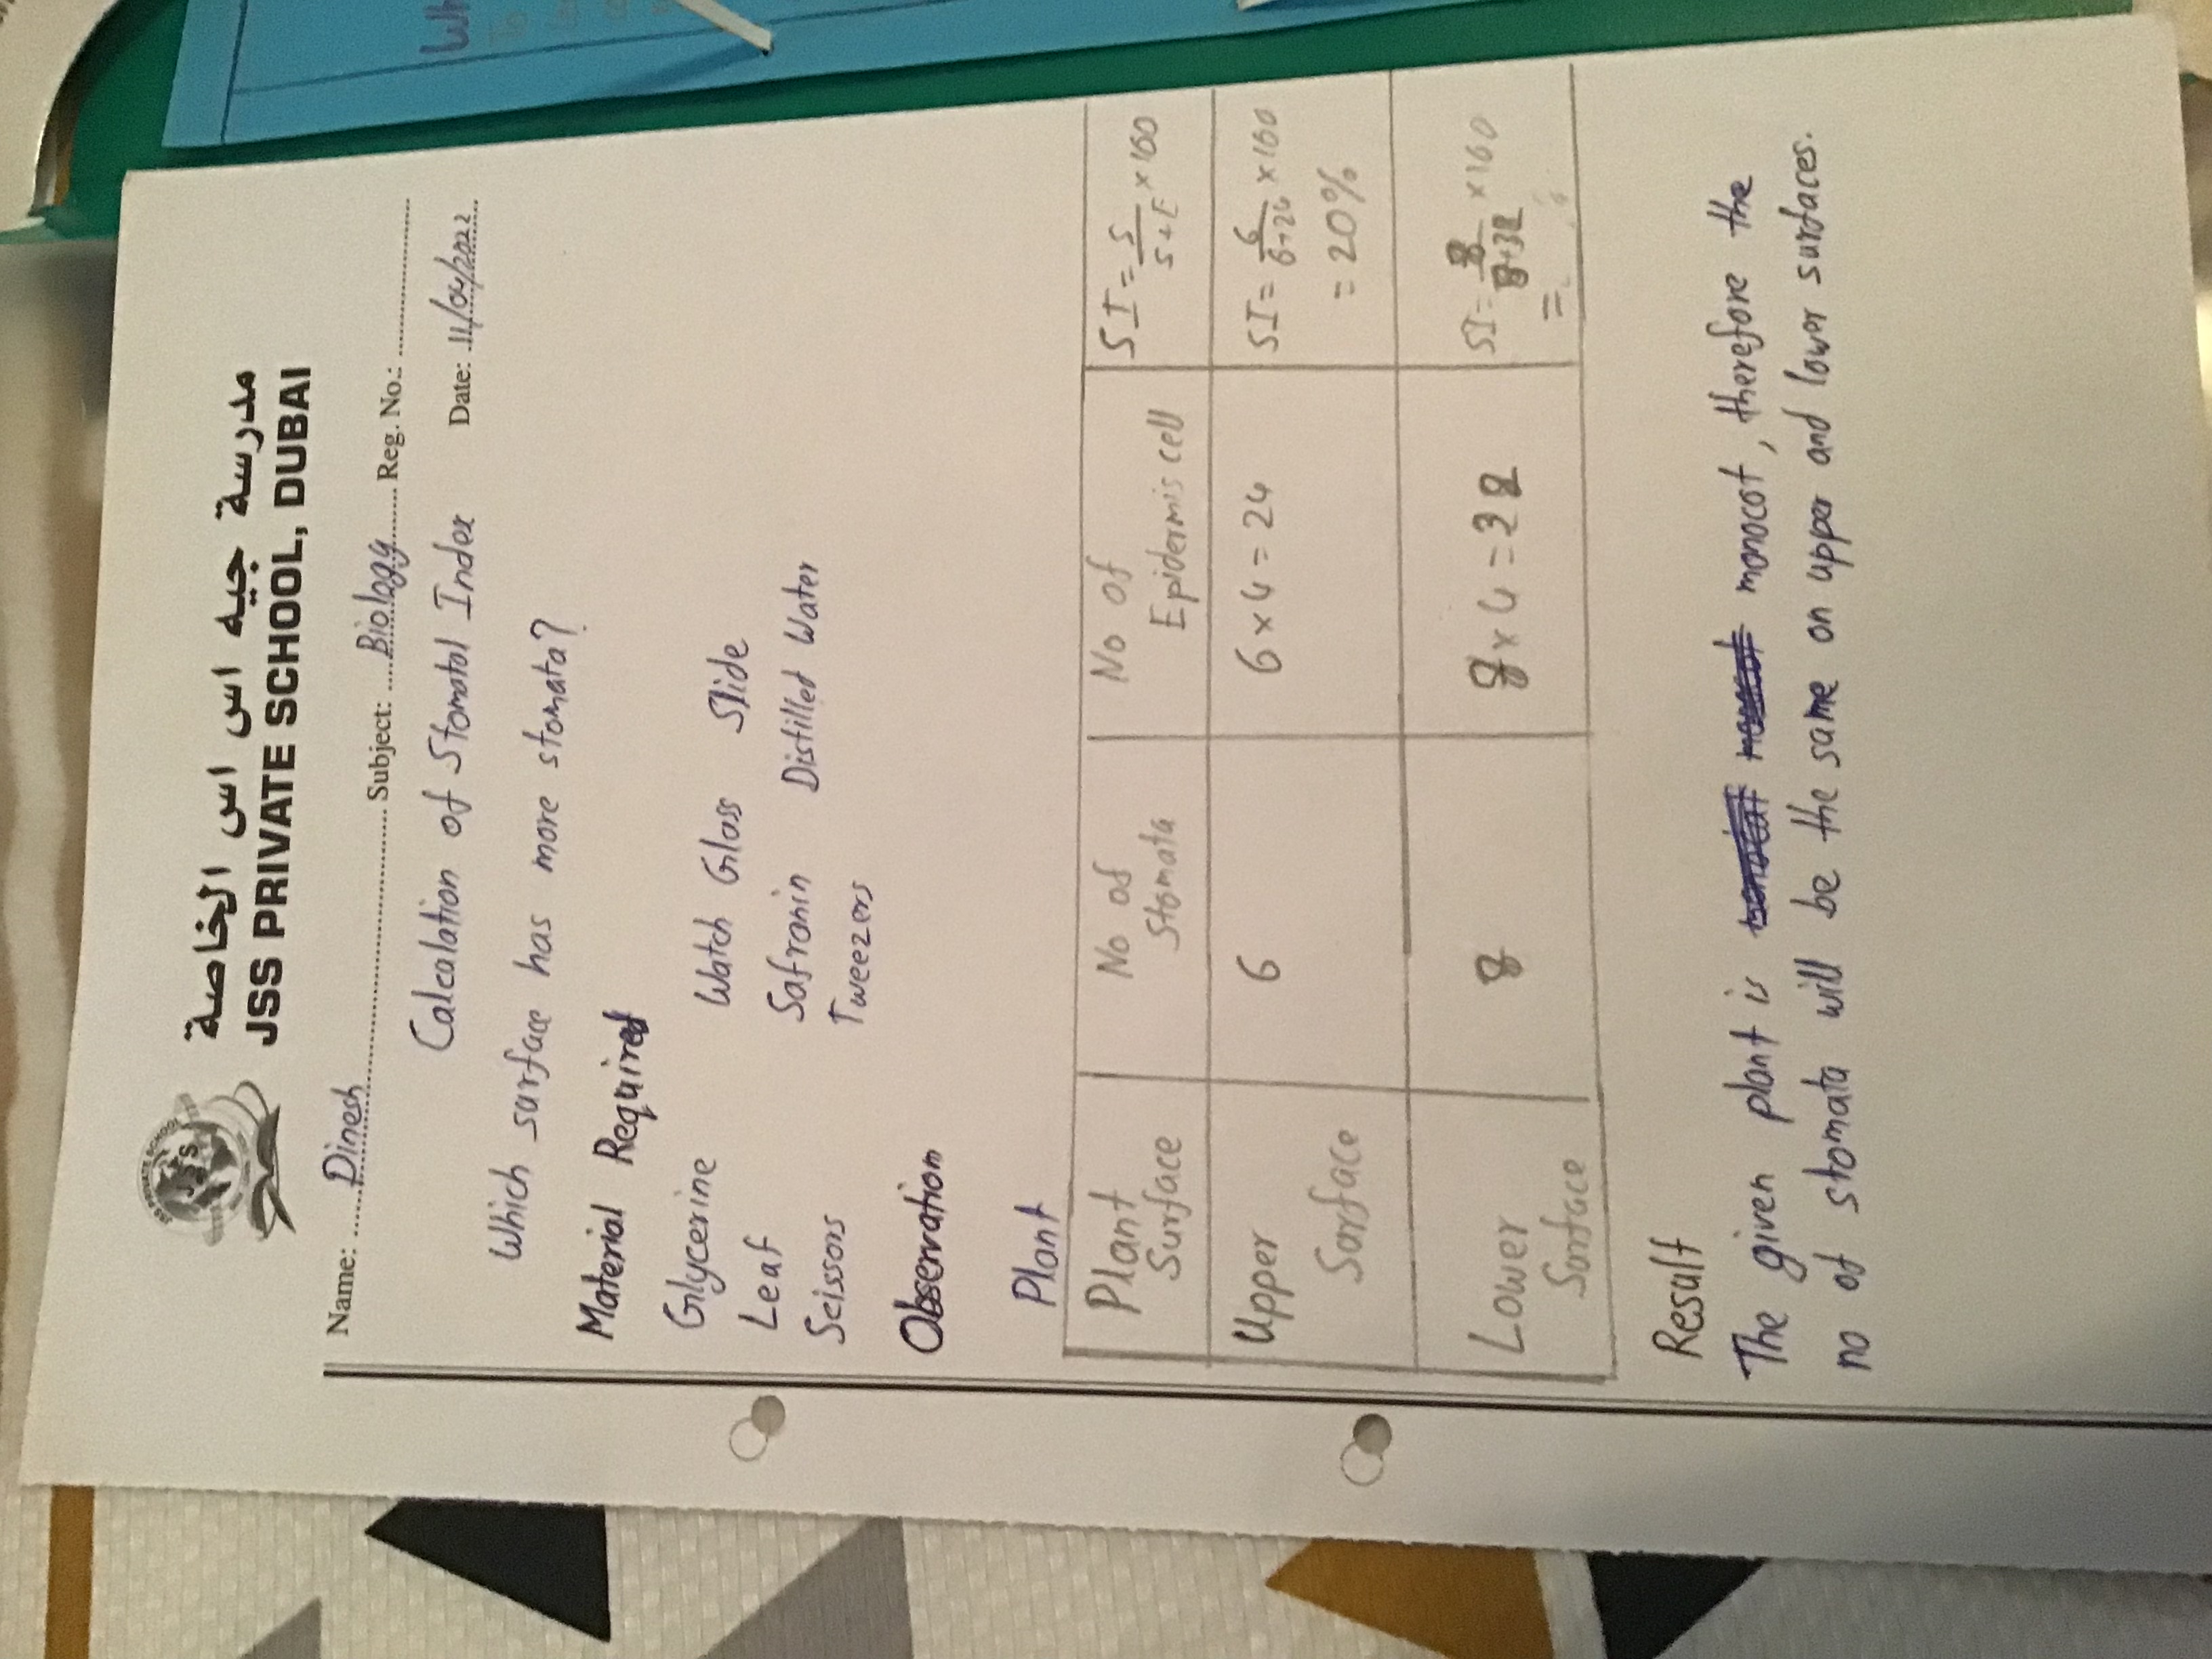 JSS PRIVATE SCHOOL
JSS
مدرسة جيه اس اس الخاصة
JSS PRIVATE SCHOOL, DUBAI
Name: Dinesh Subject: Biology Reg. No.:
Calcalation of Stomatal Index Date: 11/04/2022
Which surface has more stomata?
Material Required
Glycerine Watch Glass Slide
Leaf Safranin Distilled Water
Scissors Tweezers
Observation
Plant
Plant Surface No of Stomata No of Epidermis cell SI = S/S+E × 100
Upper Surface 6 6 × 4 = 24 SI = 6/6+24 × 100
= 20%
Lower Surface 8 8 × 4 = 32 SI = 8/8+32 × 100
=
Result
The given plant is monocot, therefore the
no of stomata will be the same on upper and lower surfaces.
Wh
To